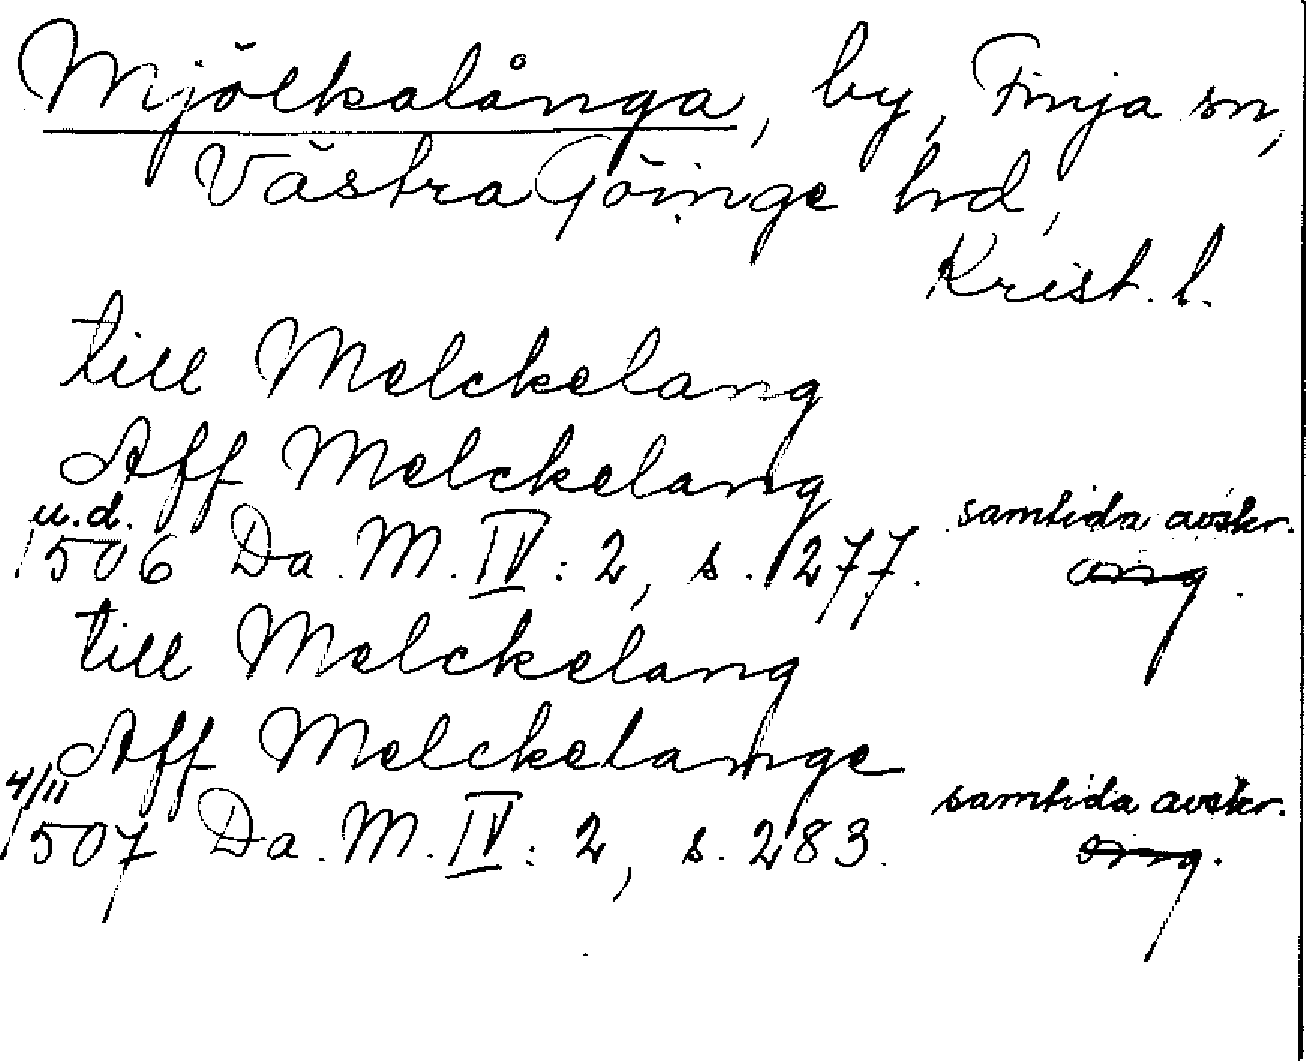 Mjölkalånga, by, Finja sn,
Västra Göinge hd,
Krist. l.
till Melckelang
Aff Melckelang
u.d. samtida avskr.
1506 Da. M. IV: 2, s. 277. orig.
till Melckelang
Aff Melckelange
4/11 samtida avskr.
1507 Da. M. IV: 2, s. 283. orig.